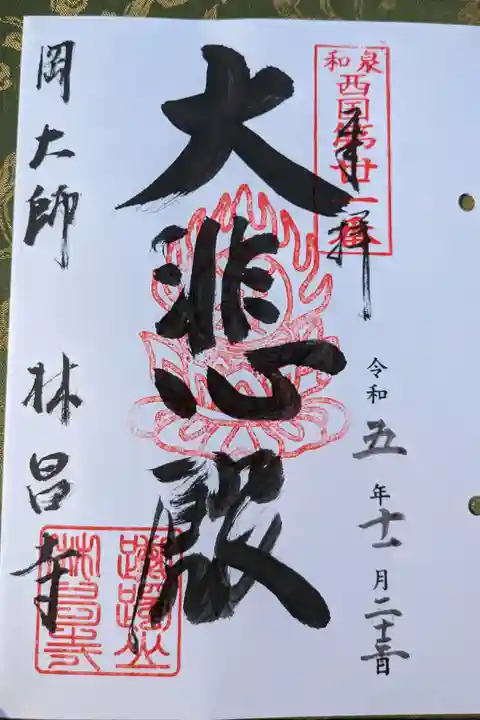 和泉
西国第廿一番
奉拝
大悲殿
令和五年十一月二十三日
岡大師 林昌寺
躑躅山
林昌寺